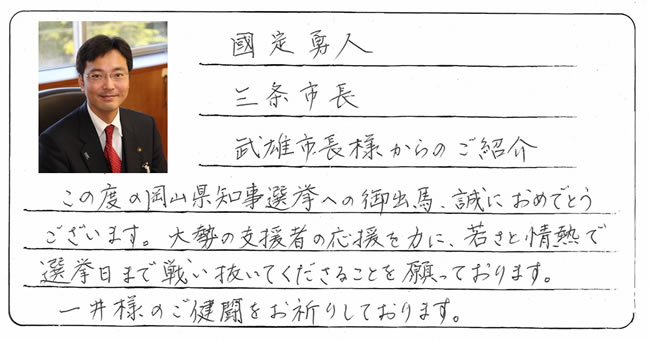 國定勇人
三条市長
武雄市長様からのご紹介
この度の岡山県知事選挙への御出馬、誠におめでとう
ございます。大勢の支援者の応援を力に、若さと情熱で
選挙日まで戦い抜いてくださることを願っております。
一井様のご健闘をお祈りしております。